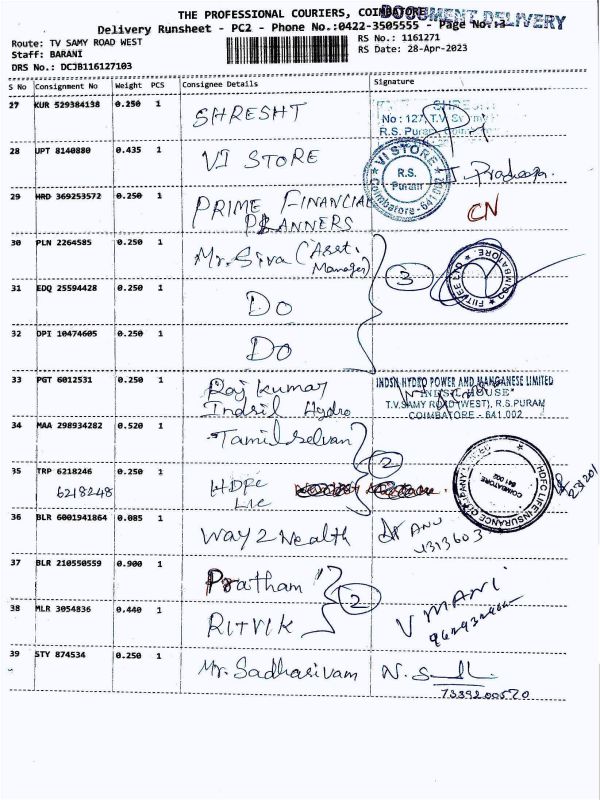 THE PROFESSIONAL COURIERS, COIMBATORE
DOCUMENT DELIVERY
Delivery Runsheet - PC2 - Phone No.:0422-3505555 - Page No.:3
Route: TV SAMY ROAD WEST
RS No.: 1161271
Staff: BARANI
RS Date: 28-Apr-2023
DRS No.: DCJB116127103
S No Consignment No Weight PCS Consignee Details Signature
27 KUR 529384138 0.250 1 SHRESHT
No : 127, T.V.
R.S. Puram,
28 UPT 8140880 0.435 1 VI STORE
VI STORE R.S. Puram Coimbatore - 641 002
J. Pradeepa.
29 HRD 369253572 0.250 1 PRIME FINANCIAL
PLANNERS
CN
30 PLN 2264585 0.250 1 Mr. Siva (Asst.
Manager)
3
FIITJEE COIMBATORE
31 EDQ 25594428 0.250 1 Do
32 DPI 10474605 0.250 1 Do
33 PGT 6012531 0.250 1 Raj kumar
Indsil Hydro
INDSIL HYDRO POWER AND MANGANESE LIMITED
"INDSIL HOUSE"
T.V.SAMY ROAD (WEST), R.S.PURAM
COIMBATORE - 641 002
34 MAA 298934282 0.520 1 Tamil selvan
2
35 TRP 6218246 0.250 1 HDFC
6218248
LIC
HDFC LIFE INSURANCE COMPANY LIMITED
COIMBATORE 641 002
36 BLR 6001941864 0.085 1 Way 2 Wealth
ANU
37 BLR 210550559 0.900 1 Pratham
2
38 MLR 3054836 0.440 1 RITVIK
V MANI
39 STY 874534 0.250 1 Mr. Sadhasivam
N. S
7339200570